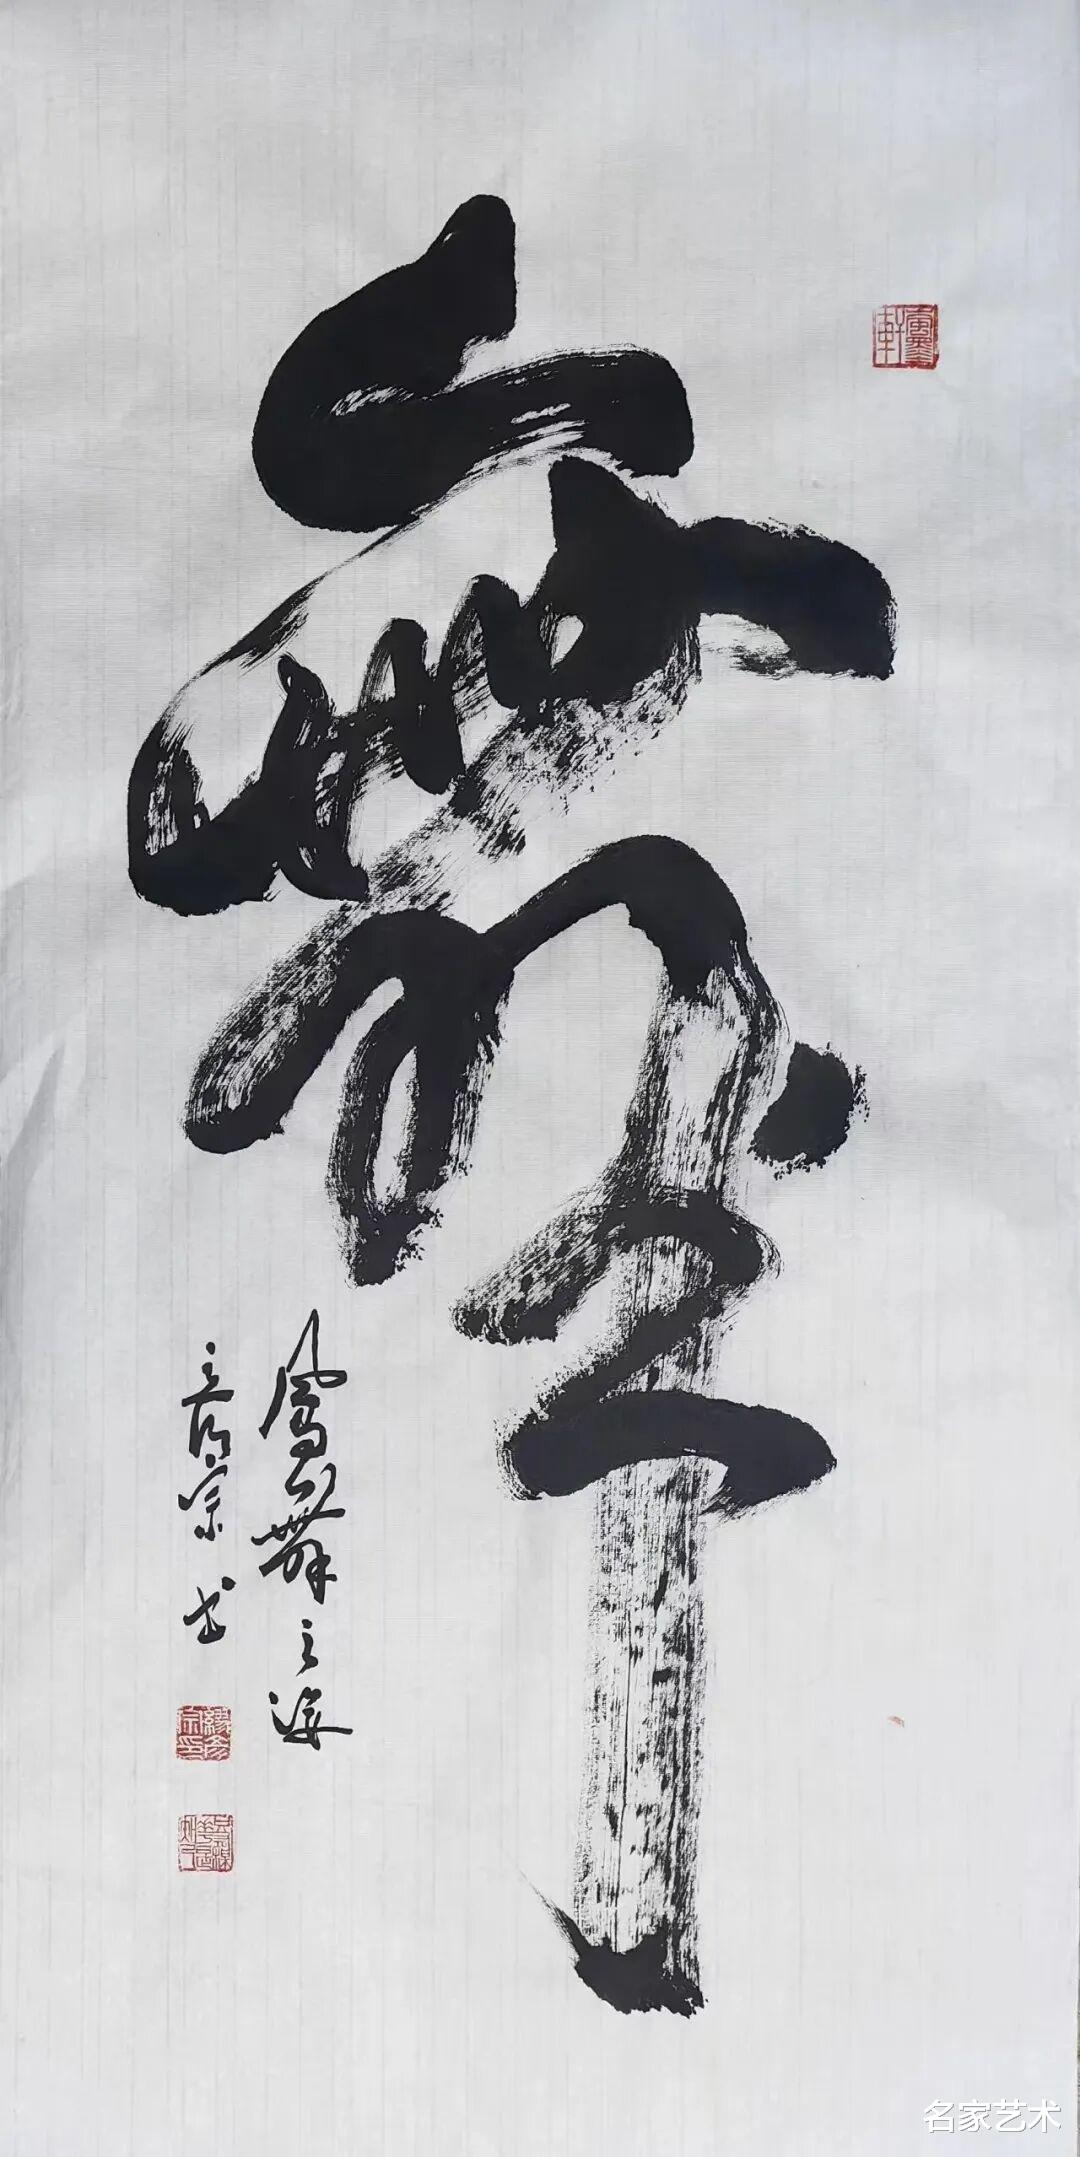 舞
鳳舞之姿
彦宗书
名家艺术